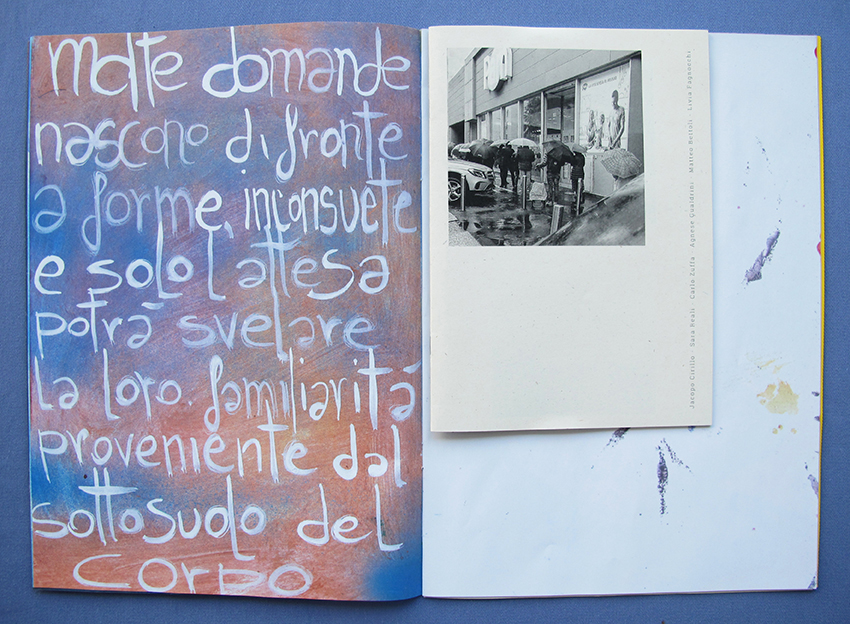 molte domande
nascono di fronte
a forme, inconsuete
e solo l'attesa
potrà svelare
la loro. familiarità
proveniente dal
sottosuolo del
corpo
Jacopo Cirillo Sara Reali Carlo Zuffa Agnese Gualdrini Matteo Bettoli Livia Fagnocchi